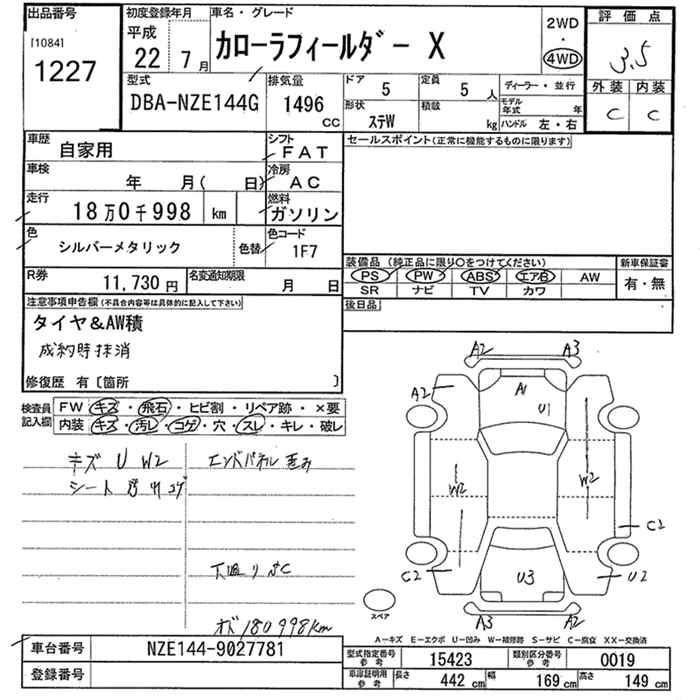 出品番号
[1084]
1227
初度登録年月
平成
22 7月
車名・グレード
カローラフィールダー X
2WD
・
4WD
評価点
3.5
外装 内装
C C
型式
DBA-NZE144G
排気量
1496
CC
ドア 5
定員 5人
形状
ステW
積載 kg
ディーラー・並行
モデル年式 年
ハンドル 左・右
車歴
自家用
シフト
FAT
車検
年 月( 日)
冷房
AC
走行
18万0千998 km
燃料
ガソリン
色
シルバーメタリック
色替
色コード
1F7
R券
11,730円
名変通知期限
月 日
セールスポイント(正常に機能するものに限ります)
装備品(純正品に限り○をつけてください)
PS PW ABS エアB AW
SR ナビ TV カワ
新車保証書
有・無
後日品
注意事項申告欄(不具合内容等は具体的に記入して下さい)
タイヤ&AW積
成約時抹消
修復歴 有〔箇所 〕
検査員
記入欄
FW キズ・飛石・ヒビ割・リペア跡・×要
内装 キズ・汚レ・コゲ・穴・スレ・キレ・破レ
キズ U W2
エンドパネル歪み
シート
下廻りサC
メーター 180998km
A2 A3
A2
A1
U1
W2
W2
C2
C2
U3
U2
A3 A2
スペア
A－キズ E－エクボ U－凹み W－補修跡 S－サビ C－腐食 XX－交換済
車台番号
NZE144-9027781
登録番号
型式指定番号
参考
15423
類別区分番号
参考
0019
車庫証明用
参考
長さ 442 cm 幅 169 cm 高さ 149 cm